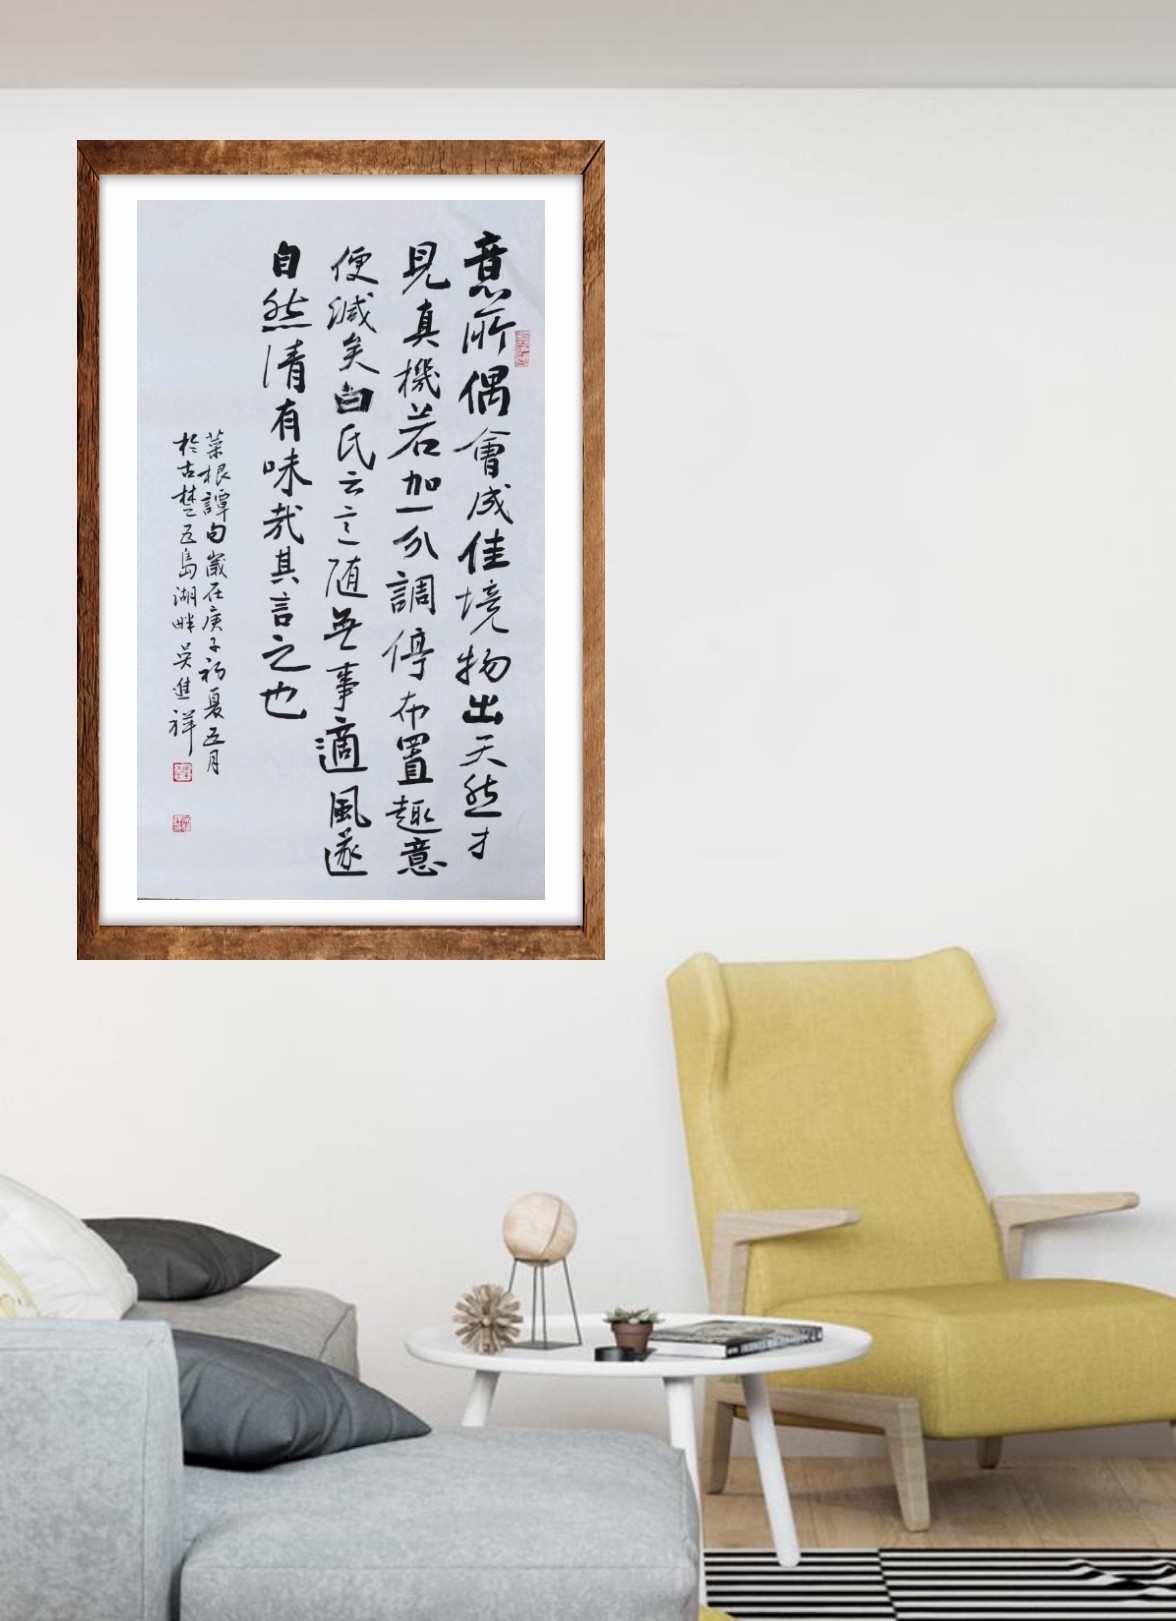 意所偶會成佳境物出天然才
見真機若加一分調停布置趣意
便減矣白氏云随無事適風遂
自然清有味哉其言之也
菜根譚句歲在庚子初夏五月
於古楚五島湖畔吳進祥